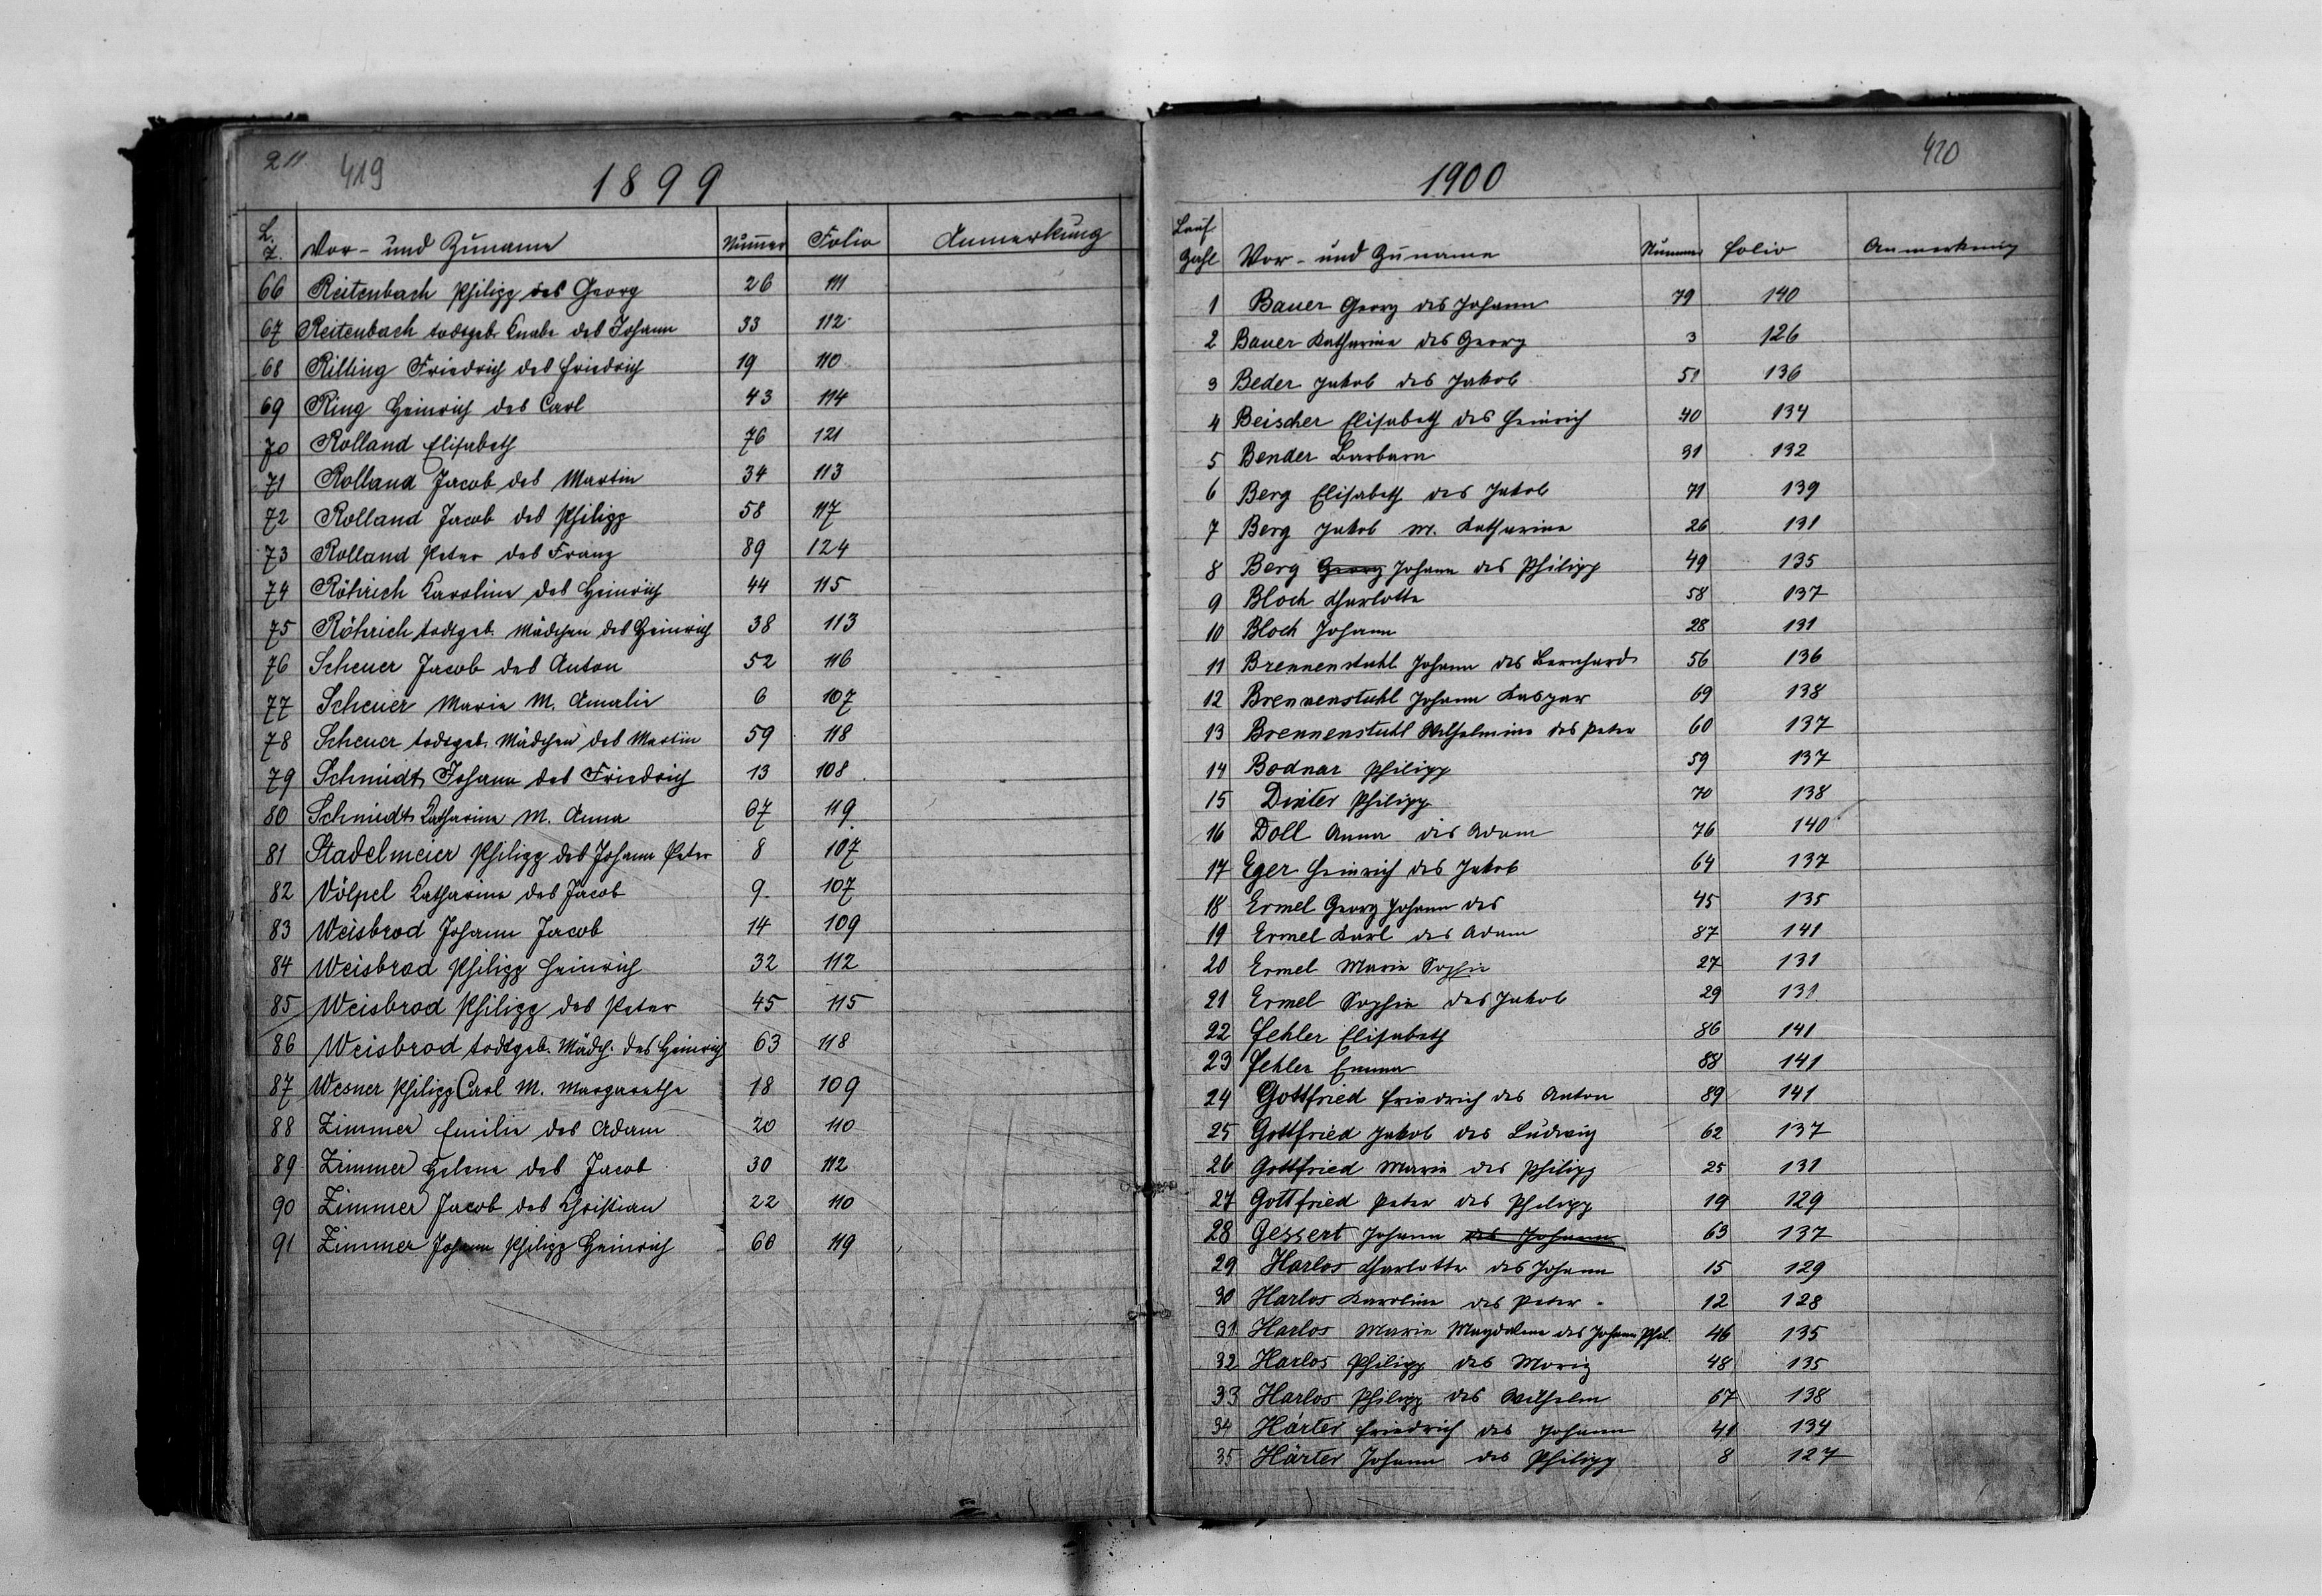 211 419
1899
L. Z. Vor- und Zuname Nummer Folio Anmerkung
66 Reitenbach Philipp des Georg 26 111
67 Reitenbach todtgeb. Knabe des Johann 33 112
68 Rilling Friedrich des Friedrich 19 110
69 Ring Heinrich des Carl 43 114
70 Rolland Elisabeth 76 121
71 Rolland Jacob des Martin 34 113
72 Rolland Jacob des Philipp 58 117
73 Rolland Peter des Franz 89 124
74 Röhrich Karoline des Heinrich 44 115
75 Röhrich todtgeb. Mädchen des Heinrich 38 113
76 Scheuer Jacob des Anton 52 116
77 Scheuer Marie M. Amalie 6 107
78 Scheuer todtgeb. Mädchen des Martin 59 118
79 Schmidt Johann des Friedrich 13 108
80 Schmidt Katharina M. Anna 67 119
81 Stadelmeier Philipp des Johann Peter 8 107
82 Völpel Katharina des Jacob 9 107
83 Weisbrod Johann Jacob 14 109
84 Weisbrod Philipp Heinrich 32 112
85 Weisbrod Philipp des Peter 45 115
86 Weisbrod todtgeb. Mädch. des Heinrich 63 118
87 Wesner Philipp Carl M. Margaretha 18 109
88 Zimmer Emilie des Adam 20 110
89 Zimmer Helena des Jacob 30 112
90 Zimmer Jacob des Christian 22 110
91 Zimmer Johann Philipp Heinrich 66 119
420
1900
Lauf. Zahl Vor- und Zuname Nummer Folio Anmerkung
1 Bauer Georg des Johann 79 140
2 Bauer Katharina des Georg 3 126
3 Beder Jakob des Jakob 51 136
4 Beischer Elisabeth des Heinrich 40 134
5 Bender Barbara 31 132
6 Berg Elisabeth des Jakob 71 139
7 Berg Jakob M. Katharina 26 131
8 Berg Georg Johann des Philipp 49 135
9 Bloch Charlotte 58 137
10 Bloch Johann 28 131
11 Brennenstuhl Johann des Bernhard 56 136
12 Brennenstuhl Johann Kaspar 69 138
13 Brennenstuhl Wilhelmine des Peter 60 137
14 Bodnar Philipp 59 137
15 Dexter Philipp 70 138
16 Doll Anna des Adam 76 140
17 Eger Heinrich des Jakob 64 137
18 Ermel Georg Johann des 45 135
19 Ermel Karl des Adam 87 141
20 Ermel Marie Sophie 27 131
21 Ermel Sophie des Jakob 29 131
22 Fehler Elisabeth 86 141
23 Fehler Emma 88 141
24 Gottfried Friedrich des Anton 89 141
25 Gottfried Jakob des Ludwig 62 137
26 Gottfried Marie des Philipp 25 131
27 Gottfried Peter des Philipp 19 129
28 Gessert Johann des Johann 63 137
29 Harlos Charlotte des Johann 15 129
30 Harlos Karoline des Peter 12 128
31 Harlos Marie Magdalena des Johann Phil. 46 135
32 Harlos Philipp des Moriz 48 135
33 Harlos Philipp des Wilhelm 67 138
34 Härter Friedrich des Johann 41 134
35 Härter Johann des Philipp 8 127